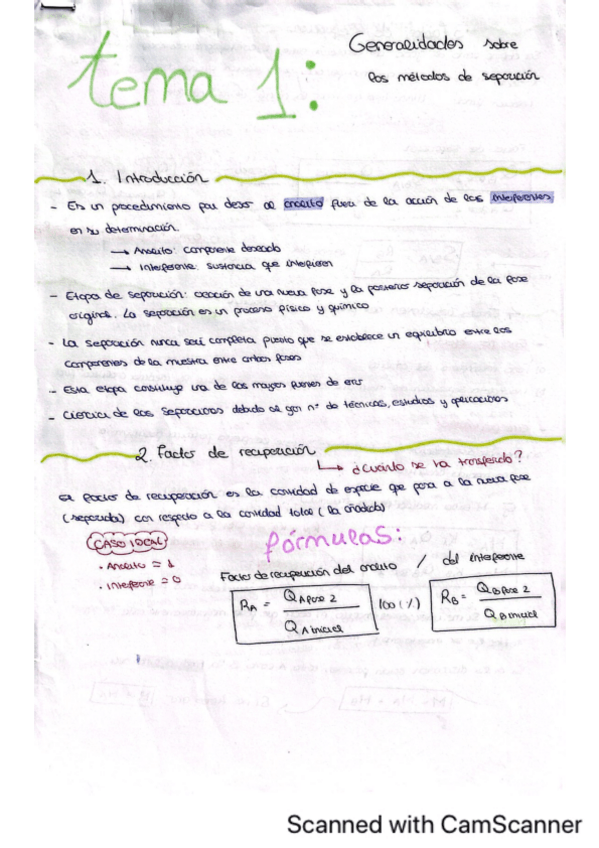 tema 1:
Generalidades sobre
los métodos de separación
1. Introducción
- Es un procedimiento para dejar al analito fuera de la acción de los interferentes
en su determinación.
→ Analito: componente deseado
→ Interferente: sustancia que interfieren
- Etapa de separación: creación de una nueva fase y la posterior separación de la fase
original. La separación es un proceso físico y químico
- La separación nunca será completa puesto que se establece un equilibrio entre los
componentes de la muestra entre ambas fases
- Esta etapa constituye una de las mayores fuentes de error
- Ciencia de las separaciones debido al gran nº de técnicas, estudios y aplicaciones
2. Factor de recuperación
↳ ¿Cuánto se ha transferido?
El factor de recuperación es la cantidad de especie que pasa a la nueva fase
(separada) con respecto a la cantidad total (la añadida)
CASO IDEAL
· Analito = 1
· Interferente = 0
fórmulas:
Factor de recuperación del analito / del interferente
R_A = Q_A fase 2 / Q_A inicial 100 (%)
R_B = Q_B fase 2 / Q_B inicial
Scanned with CamScanner